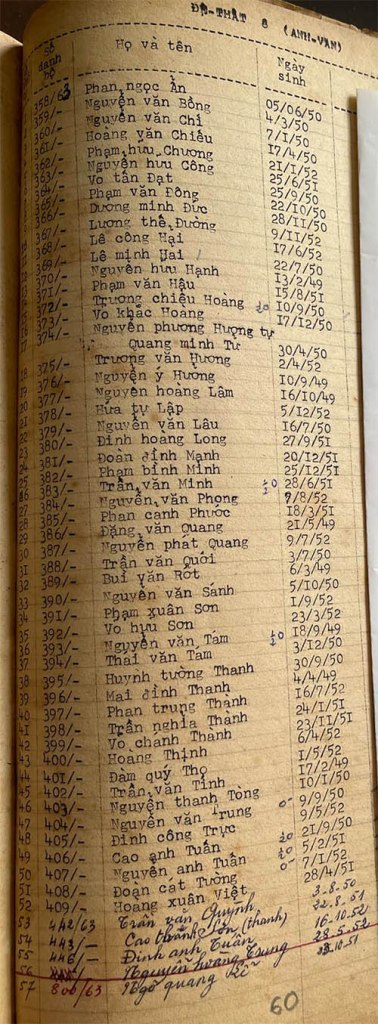 ĐỆ-THẤT 8 (ANH-VĂN)
Số danh bộ Họ và tên Ngày sinh
358/63 Phan ngọc Ẩn 05/06/50
359/- Nguyễn văn Bồng 4/3/50
360/- Nguyễn văn Chỉ 7/I/50
361/- Hoàng văn Chiểu I7/4/50
362/- Phạm hữu Chương 2I/I/52
363/- Nguyễn hữu Công 25/6/5I
364/- Võ tấn Đạt 25/9/50
365/- Phạm văn Đông 22/I0/50
366/- Dương minh Đức 28/II/50
367/- Lương thế Đường 9/II/52
368/- Lê công Hại I7/6/52
369/- Lê minh Hai 22/7/50
370/- Nguyễn hữu Hạnh I3/2/49
37I/- Phạm văn Hậu I5/8/5I
372/- Trương chiêu Hoàng I0/9/50
373/- Võ khắc Hoàng I7/I2/50
17 374/- Nguyễn phương Hương tự
Quang minh Tư 30/4/50
18 375/- Trương văn Hương 2/4/52
19 376/- Nguyễn ý Hương I0/9/49
20 377/- Nguyễn hoàng Lâm I6/I0/49
21 378/- Hứa tự Lập 5/I2/52
22 379/- Nguyễn văn Lâu I6/7/50
23 380/- Đinh hoàng Long 27/9/5I
24 38I/- Đoàn đình Mạnh 20/I2/5I
25 382/- Phạm bỉnh Minh 25/I2/5I
26 383/- Trần văn Minh 28/6/5I
27 384/- Nguyễn văn Phong 7/8/52
28 385/- Phan canh Phước I8/3/5I
29 386/- Đặng văn Quang 2I/5/49
30 387/- Nguyễn phát Quang 9/7/52
31 388/- Trần văn Quới 3/7/50
32 389/- Bùi văn Rớt 6/3/49
33 390/- Nguyễn văn Sánh 5/I0/50
34 39I/- Phạm xuân Sơn I/9/52
35 392/- Võ hữu Sơn 23/3/52
36 393/- Nguyễn văn Tam I8/9/49
37 394/- Thái văn Tam 3/I2/50
38 395/- Huỳnh tường Thanh 30/9/50
39 396/- Mai đình Thanh 4/4/49
40 397/- Phan trung Thành I6/7/52
41 398/- Trần nghĩa Thành 24/I/5I
42 399/- Võ chánh Thành 23/II/5I
43 400/- Hoàng Thịnh 6/4/52
44 40I/- Đàm quý Thọ I/5/52
45 402/- Trần văn Tỉnh I7/2/49
46 403/- Nguyễn thanh Tòng I0/I/50
47 404/- Nguyễn văn Trung 9/9/50
48 405/- Đinh công Trực 9/5/52
49 406/- Cao anh Tuấn 2I/9/50
50 407/- Nguyễn anh Tuấn 5/2/5I
5I 408/- Đoàn cát Tường 7/I/52
52 409/- Hoàng xuân Việt 28/4/5I
53 442/63 Trần văn Quỳnh 3.8.50
54 443/- Cao thành (thanh) 22.8.51
55 446/- Đinh anh Tuấn 16-10.52
56 Nguyễn hoàng Trung 28.5.52
57 800/63 Ngô quang 10.51
60